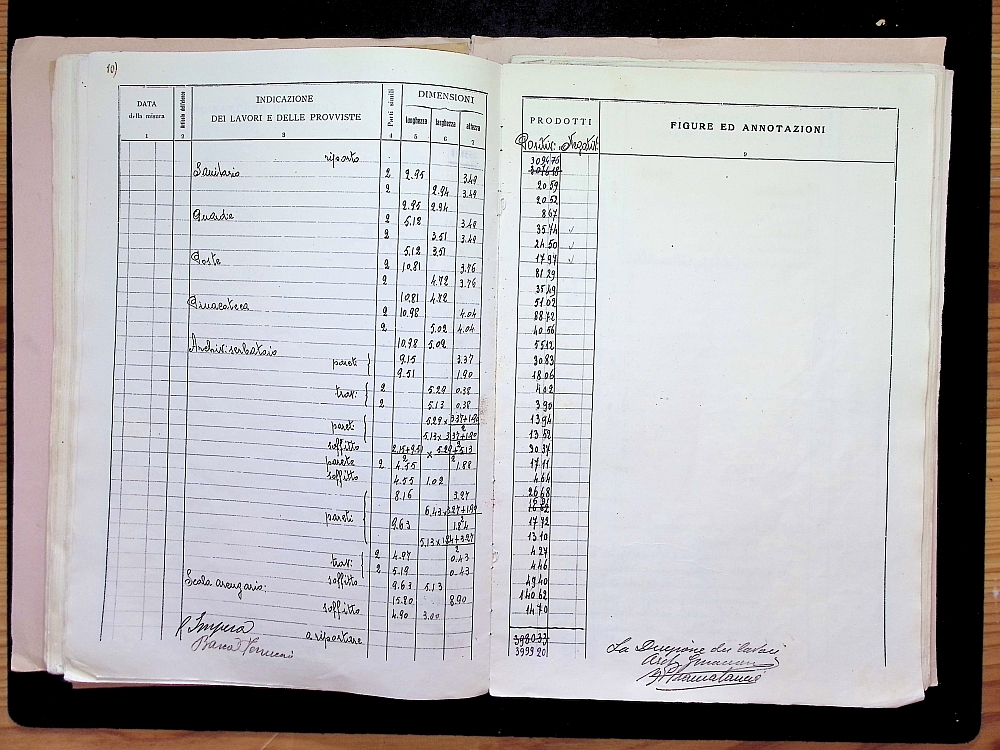 10)
DATA della misura
Articolo dell'elenco
INDICAZIONE
DEI LAVORI E DELLE PROVVISTE
Parti simili
DIMENSIONI
lunghezza larghezza altezza
1 2 3 4 5 6 7
riporto
Sanitario 2 2.95 3.49
2 2.94 3.49
2.95 2.94
Guardie 2 5.12 3.49
2 3.51 3.49
5.12 3.51
Poste 2 10.81 3.76
2 4.72 3.76
10.81 4.72
Pinacoteca 2 10.98 4.04
2 5.02 4.04
10.98 5.02
pareti 9.15 3.37
9.51 1.90
travi 2 5.29 0.38
2 5.13 0.38
pareti 5.29 x 3.37+1.90 / 2
5.13 x 3.37+1.90 / 2
soffitto
parete 2 4.55 1.88
soffitto 4.55 1.02
8.16 3.27
pareti
9.63 1.84
5.13 x 1.84+3.27 / 2
travi 2 4.97 0.43
2 5.19 0.43
soffitto 9.63 5.13
Scala arengario: 15.80 8.90
soffitto 4.90 3.00
a riportare
L'Impresa
PRODOTTI
Positivi Negativi
FIGURE ED ANNOTAZIONI
9
3094 76
20 59
20 52
8 67
35 74
24 50
17 97
81 29
35 49
51 02
88 72
40 56
55 12
30 83
18 06
4 02
3 90
13 94
13 52
30 37
17 11
4 64
26 68
17 72
13 10
4 27
4 46
49 40
140 62
14 70
3999 20
La Direzione dei lavori